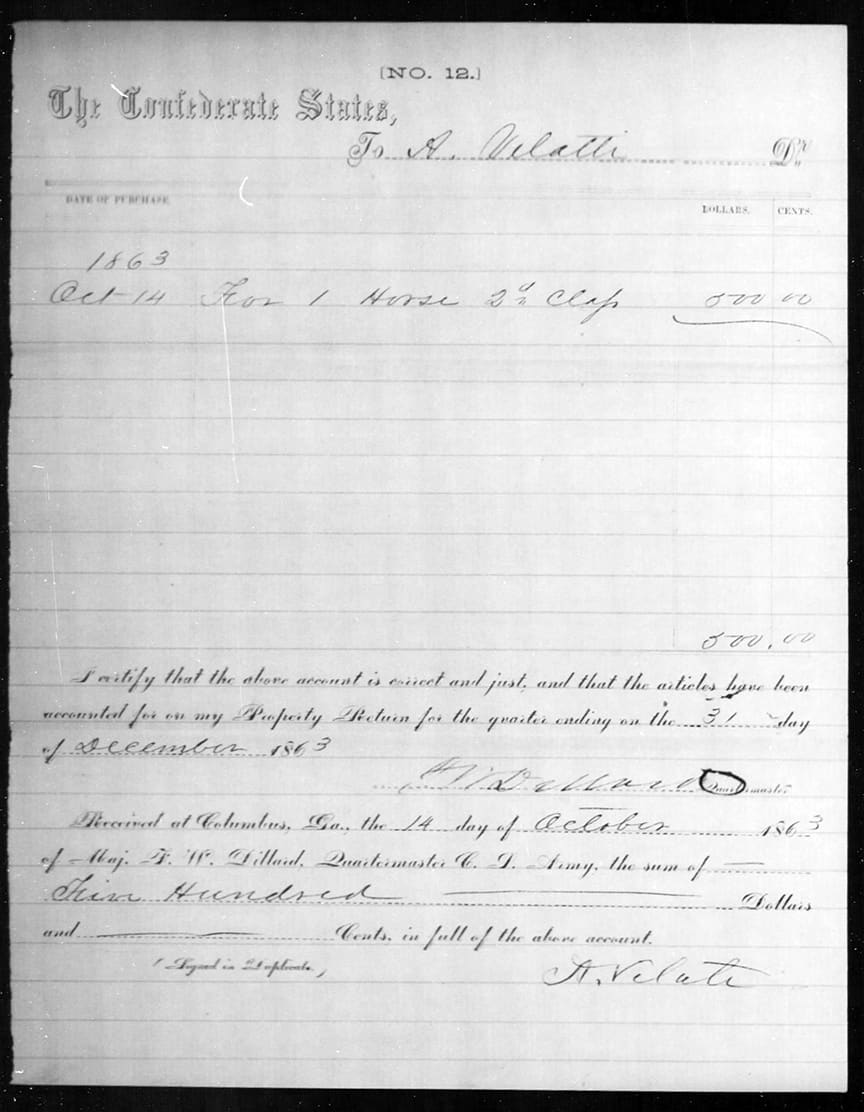 [NO. 12.]
The Confederate States,
To A. Velatti Dr.
DATE OF PURCHASE. DOLLARS. CENTS.
1863
Oct 14 For 1 Horse 2d Class 500 00
500.00
I certify that the above account is correct and just, and that the articles have been
accounted for on my Property Return for the quarter ending on the 31 day
of December 1863
F W Dillard Quartermaster
Received at Columbus, Ga., the 14 day of October 1863
of Maj. F. W. Dillard, Quartermaster C. S. Army, the sum of
Five Hundred Dollars
and Cents, in full of the above account.
(Signed in Duplicate.)
A. Velati